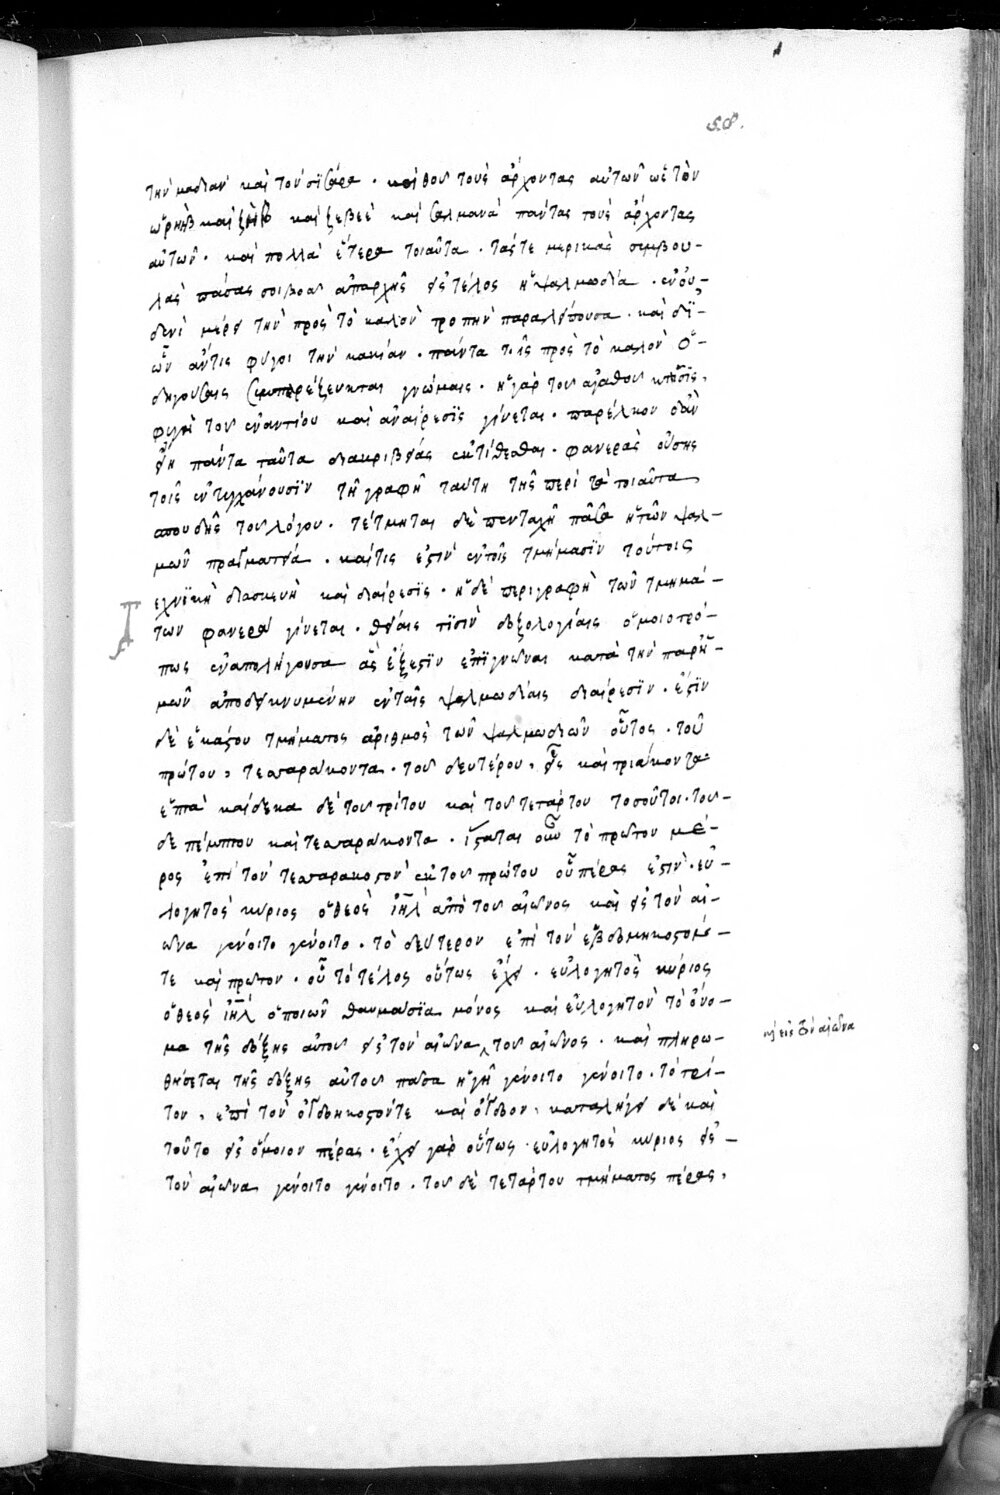 58.
τὴν μαδιὰν καὶ τὸν σϊσάρα · καὶ θοῦ τοὺς ἄρχοντας αὐτῶν ὡς τὸν
ὠρὴβ καὶ ζὴβ καὶ ζεβεὲ καὶ σαλμανὰ πάντας τοὺς ἄρχοντας
αὐτῶν · καὶ πολλὰ ἕτερα τοιαῦτα · τάς τε μερικὰς συμβου-
λὰς πάσας ἀπαρχῆς εἰς τέλος ἡ ψαλμωδία · ἐν οὐ-
δενὶ μέρει τὴν πρὸς τὸ καλὸν τροπὴν παραλείπουσα · καὶ δϊ-
ὧν ἄν τις φύγοι τὴν κακίαν · πάντα τοῖς πρὸς τὸ καλὸν ὁ-
δηγούσαις γνώμαις · ἡ γὰρ τοῦ ἀγαθοῦ κτῆσϊς,
φυγὴ τοῦ ἐναντίου καὶ ἀναίρεσϊς γίνεται · παρέλκον δ' ἂν
εἴη πάντα ταῦτα διακριβείας ἐκτίθεσθαι · φανερᾶς οὔσης
τοῖς ἐντυγχάνουσϊν τῆ γραφῆ ταύτη τῆς περὶ τὰ τοιαῦτα
σπουδῆς τοῦ λόγου · τέτμηται δὲ πενταχῆ πᾶσα ἡ τῶν ψαλ-
μῶν πραγματεία · καί τις ἐστὶν ἐν τοῖς τμήμασϊν τούτοις
εχνϊκὴ διασκευὴ καὶ διαίρεσϊς · ἡ δὲ περιγραφὴ τῶν τμημά-
των φανερὰ γίνεται · θείαις τϊσὶν δοξολογίαις ὁμοιοτρό-
πως ἐναπολήγουσα ἃς ἔξεστϊν ἐπϊγνῶναι κατὰ τὴν παρ' ἡ-
μῶν ἀποδεικνυμένην ἐν ταῖς ψαλμωδίαις διαίρεσϊν · ἔστϊν
δὲ ἑκάστου τμήματος ἀριθμὸς τῶν ψαλμωδιῶν οὗτος · τοῦ
πρώτου, τεσσαράκοντα · τοῦ δευτέρου, εἷς καὶ τριάκοντα
ἑπτὰ καὶ δέκα δὲ τοῦ τρίτου καὶ τοῦ τετάρτου τοσοῦτοι · τοῦ
δὲ πέμπτου καὶ τεσσαράκοντα · ἵσταται οὖν τὸ πρῶτον μέ-
ρος ἐπὶ τὸν τεσσαρακοστὸν ἐκ τοῦ πρώτου οὗ πέρας ἐστὶν · εὐ-
λογητὸς κύριος ὁ θεὸς ἰηλ ἀπὸ τοῦ αἰῶνος καὶ εἰς τὸν αἰ-
ῶνα γένοιτο γένοιτο · τὸ δεύτερον ἐπὶ τὸν ἑβδομηκοστόν
τε καὶ πρῶτον · οὗ τὸ τέλος οὕτως ἔχει · εὐλογητὸς κύριος
ὁ θεὸς ἰηλ ὁ ποιῶν θαυμάσϊα μόνος καὶ εὐλογητὸν τὸ ὄνο-
μα τῆς δόξης αὐτοῦ εἰς τὸν αἰῶνα ‸ τοῦ αἰῶνος · καὶ πληρω-
καὶ εἰς τὸν αἰῶνα
θήσεται τῆς δόξης αὐτοῦ πᾶσα ἡ γῆ γένοιτο γένοιτο · τὸ τρί-
τον, ἐπὶ τὸν ὀγδοηκοστόν τε καὶ ὄγδοον · καταλήγει δὲ καὶ
τοῦτο εἰς ὅμοιον πέρας · ἔχει γὰρ οὕτως · εὐλογητὸς κύριος εἰς
τὸν αἰῶνα γένοιτο γένοιτο · τοῦ δὲ τετάρτου τμήματος πέρας,